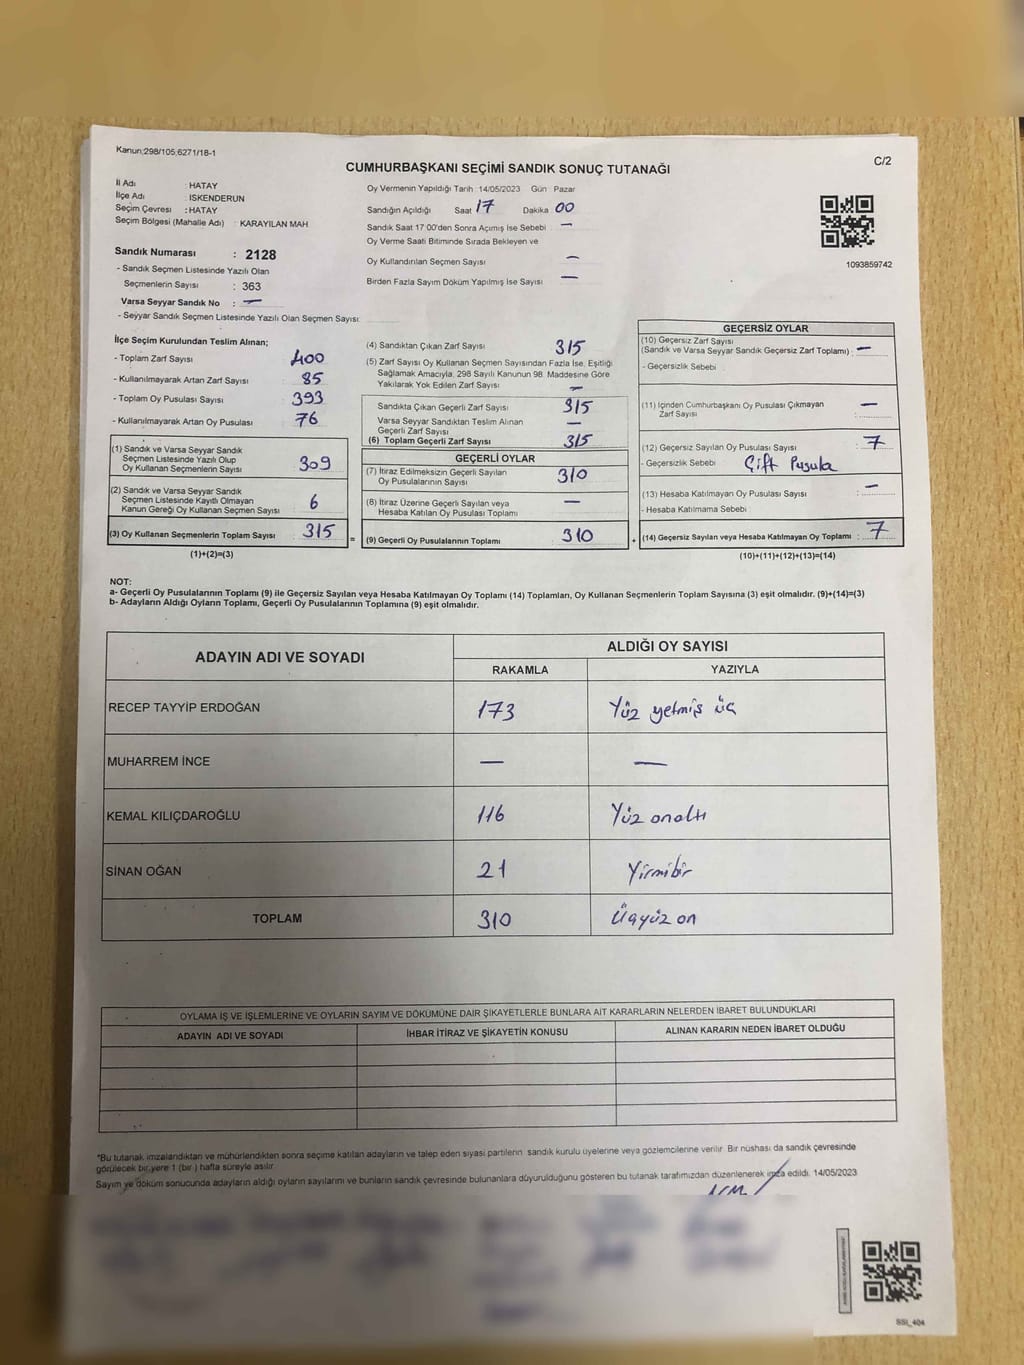 Kanun;298/105;6271/18-1
C/2
CUMHURBAŞKANI SEÇİMİ SANDIK SONUÇ TUTANAĞI
İl Adı : HATAY
İlçe Adı : İSKENDERUN
Seçim Çevresi : HATAY
Seçim Bölgesi (Mahalle Adı) : KARAYILAN MAH
Sandık Numarası : 2128
- Sandık Seçmen Listesinde Yazılı Olan
Seçmenlerin Sayısı : 363
Varsa Seyyar Sandık No : —
- Seyyar Sandık Seçmen Listesinde Yazılı Olan Seçmen Sayısı:
Oy Vermenin Yapıldığı Tarih :14/05/2023 Gün Pazar
Sandığın Açıldığı Saat 17 Dakika 00
Sandık Saat 17 00'den Sonra Açımış İse Sebebi —
Oy Verme Saati Bitiminde Sırada Bekleyen ve
Oy Kullandırılan Seçmen Sayısı —
Birden Fazla Sayım Döküm Yapılmış İse Sayısı —
1093859742
İlçe Seçim Kurulundan Teslim Alınan;
- Toplam Zarf Sayısı 400
- Kullanılmayarak Artan Zarf Sayısı 85
- Toplam Oy Pusulası Sayısı 393
- Kullanılmayarak Artan Oy Pusulası 76
(1) Sandık ve Varsa Seyyar Sandık
Seçmen Listesinde Yazılı Olup
Oy Kullanan Seçmenlerin Sayısı 309
(2) Sandık ve Varsa Seyyar Sandık
Seçmen Listesinde Kayıtlı Olmayan
Kanun Gereği Oy Kullanan Seçmen Sayısı 6
(3) Oy Kullanan Seçmenlerin Toplam Sayısı 315
(1)+(2)=(3)
=
(4) Sandıktan Çıkan Zarf Sayısı 315
(5) Zarf Sayısı Oy Kullanan Seçmen Sayısından Fazla İse, Eşitliği
Sağlamak Amacıyla, 298 Sayılı Kanunun 98. Maddesine Göre
Yakılarak Yok Edilen Zarf Sayısı —
Sandıkta Çıkan Geçerli Zarf Sayısı 315
Varsa Seyyar Sandıktan Teslim Alınan
Geçerli Zarf Sayısı —
(6) Toplam Geçerli Zarf Sayısı 315
GEÇERLİ OYLAR
(7) İtiraz Edilmeksizin Geçerli Sayılan
Oy Pusulalarının Sayısı 310
(8) İtiraz Üzerine Geçerli Sayılan veya
Hesaba Katılan Oy Pusulası Toplamı —
(9) Geçerli Oy Pusulalarının Toplamı 310
+
GEÇERSİZ OYLAR
(10) Geçersiz Zarf Sayısı
(Sandık ve Varsa Seyyar Sandık Geçersiz Zarf Toplamı) : —
- Geçersizlik Sebebi :
(11) İçinden Cumhurbaşkanı Oy Pusulası Çıkmayan
Zarf Sayısı : —
(12) Geçersiz Sayılan Oy Pusulası Sayısı : 7
- Geçersizlik Sebebi Çift Pusula
(13) Hesaba Katılmayan Oy Pusulası Sayısı : —
- Hesaba Katılmama Sebebi
(14) Geçersiz Sayılan veya Hesaba Katılmayan Oy Toplamı : 7
(10)+(11)+(12)+(13)=(14)
NOT:
a- Geçerli Oy Pusulalarının Toplamı (9) ile Geçersiz Sayılan veya Hesaba Katılmayan Oy Toplamı (14) Toplamları, Oy Kullanan Seçmenlerin Toplam Sayısına (3) eşit olmalıdır. (9)+(14)=(3)
b- Adayların Aldığı Oyların Toplamı, Geçerli Oy Pusulalarının Toplamına (9) eşit olmalıdır.
ADAYIN ADI VE SOYADI ALDIĞI OY SAYISI
RAKAMLA YAZIYLA
RECEP TAYYİP ERDOĞAN 173 Yüz yetmiş üç
MUHARREM İNCE — —
KEMAL KILIÇDAROĞLU 116 Yüz onaltı
SİNAN OĞAN 21 Yirmibir
TOPLAM 310 Üçyüz on
OYLAMA İŞ VE İŞLEMLERİNE VE OYLARIN SAYIM VE DÖKÜMÜNE DAİR ŞİKAYETLERLE BUNLARA AİT KARARLARIN NELERDEN İBARET BULUNDUKLARI
ADAYIN ADI VE SOYADI İHBAR İTİRAZ VE ŞİKAYETİN KONUSU ALINAN KARARIN NEDEN İBARET OLDUĞU
*Bu tutanak imzalandıktan ve mühürlendikten sonra seçime katılan adayların ve talep eden siyasi partilerin sandık kurulu üyelerine veya gözlemcilerine verilir. Bir nüshası da sandık çevresinde
görülecek bir yere 1 (bir ) hafta süreyle asılır.
Sayım ve döküm sonucunda adayların aldığı oyların sayılarını ve bunların sandık çevresinde bulunanlara düyurulduğunu gösteren bu tutanak tarafımızdan düzenlenerek imza edildi. 14/05/2023
SSİ_404